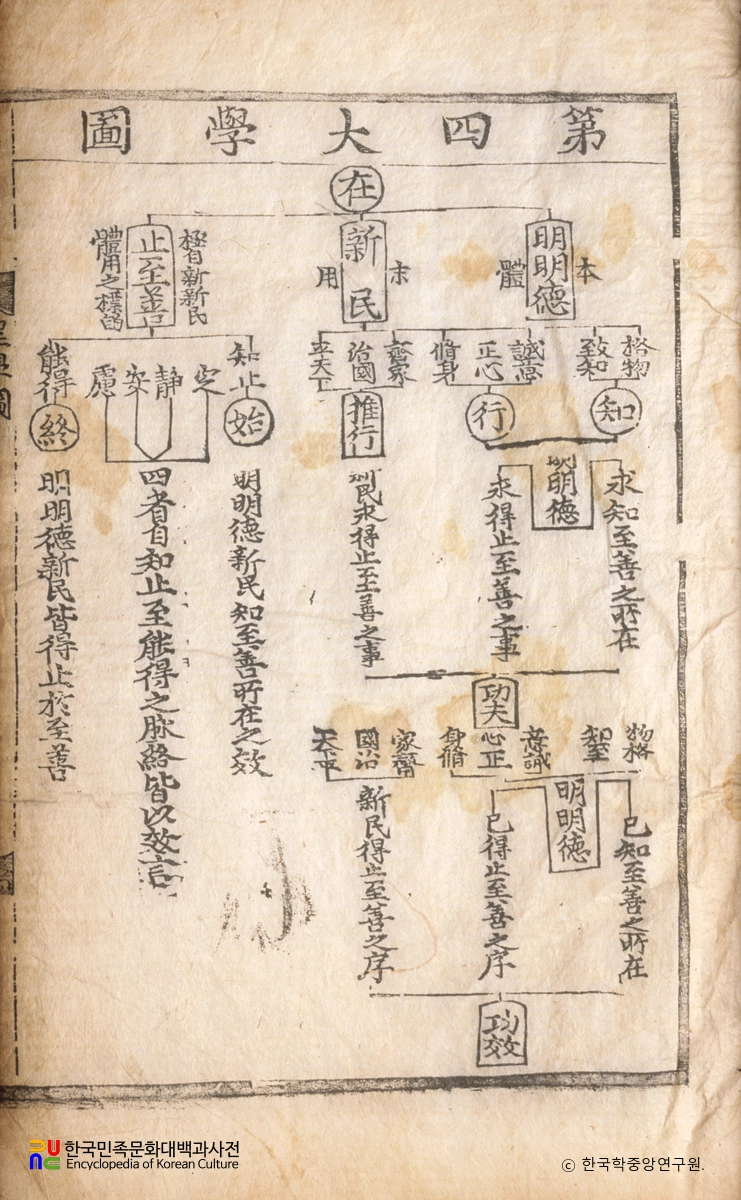 第四大學圖
在
明明德
本
體
新民
末
用
止至善
極自新新民
體用之標的
格物
致知
誠意
正心
脩身
齊家
治國
平天下
知止
定
靜
安
慮
能得
知
行
推行
始
終
明明德
求知至善之所在
求得止至善之事
新民求得止至善之事
明明德新民知至善所在之效
四者自知止至能得之脉絡皆以效言
明明德新民皆得止於至善
功夫
物格
知至
意誠
心正
身脩
家齊
國治
天下平
明明德
已知至善之所在
已得止至善之序
新民得止至善之序
功效
한국민족문화대백과사전
Encyclopedia of Korean Culture
ⓒ 한국학중앙연구원.